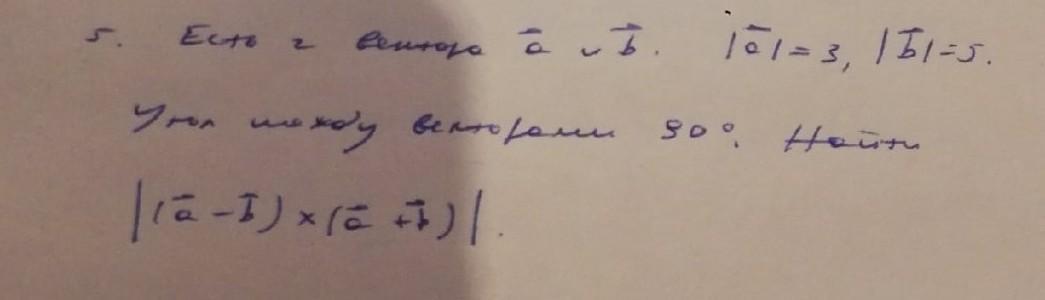 5. Есть 2 вектора a⃗ и b⃗. |a⃗|=3, |b⃗|=5.
Угол между векторами 90°. Найти
|(a⃗ - b⃗) × (a⃗ + b⃗)|.